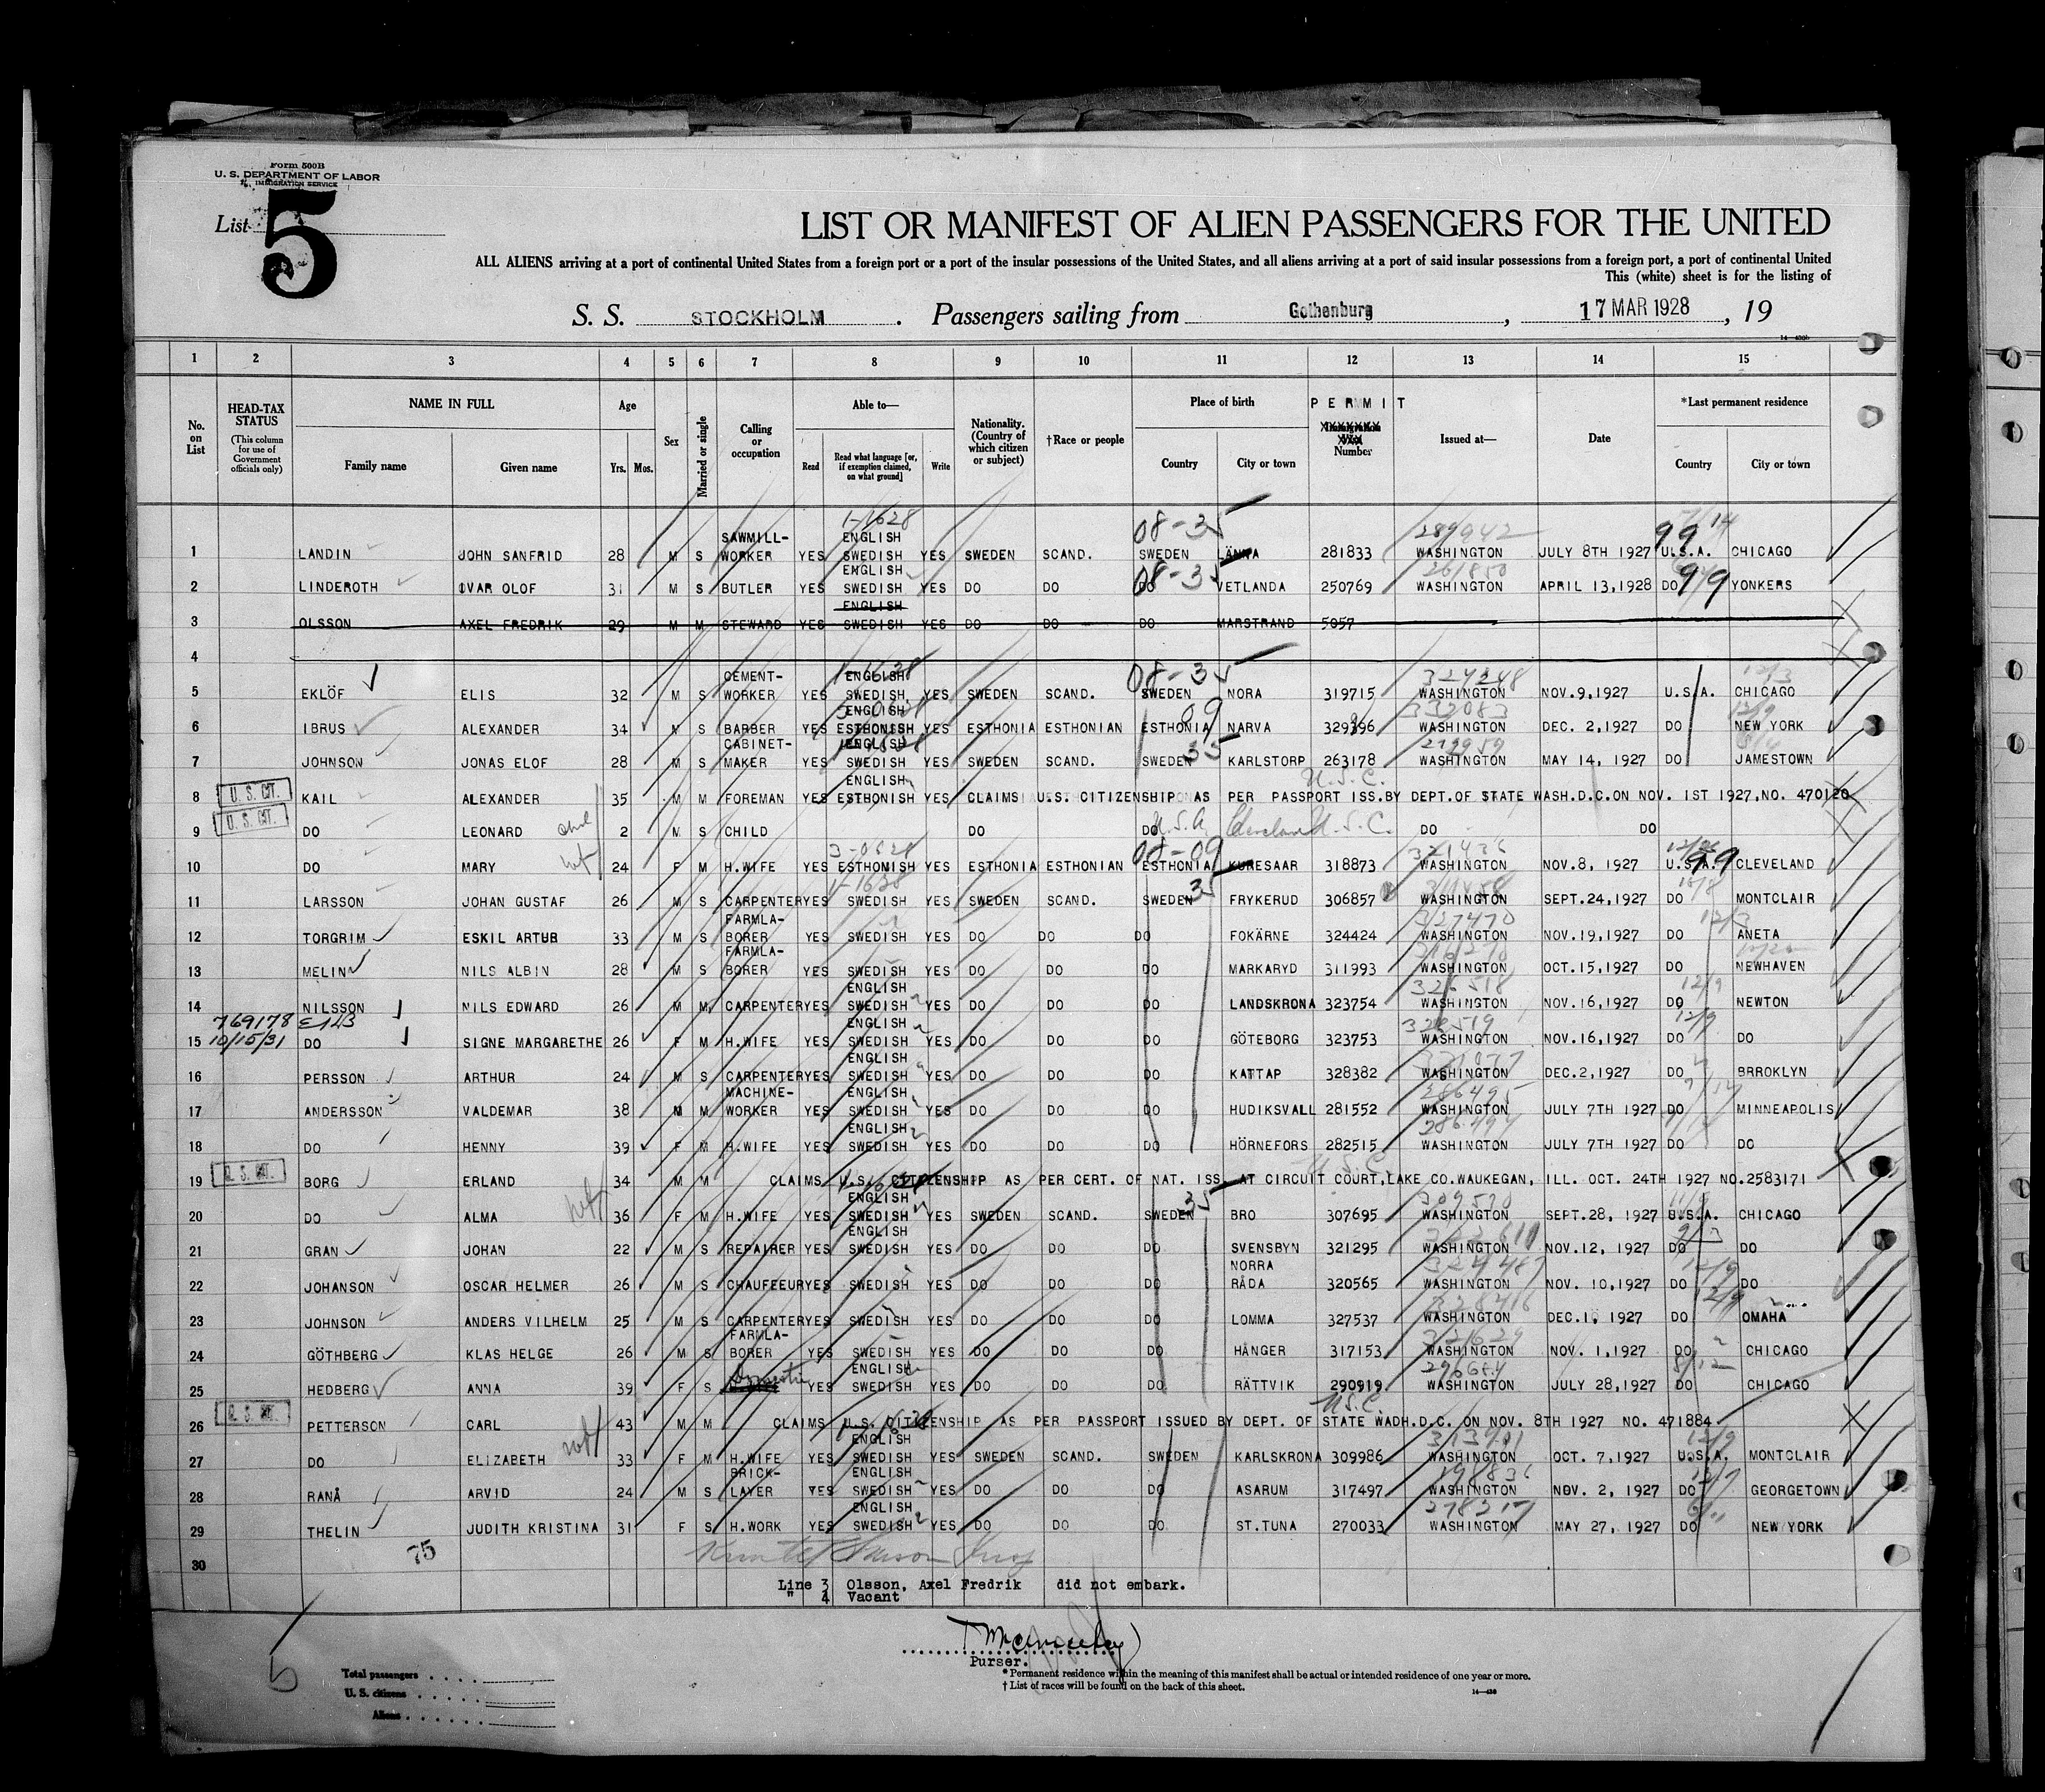 Form 500B
U. S. DEPARTMENT OF LABOR
IMMIGRATION SERVICE
List 5
LIST OR MANIFEST OF ALIEN PASSENGERS FOR THE UNITED
ALL ALIENS arriving at a port of continental United States from a foreign port or a port of the insular possessions of the United States, and all aliens arriving at a port of said insular possessions from a foreign port, a port of continental United
This (white) sheet is for the listing of
S. S. STOCKHOLM . Passengers sailing from Gothenburg , 17 MAR 1928 , 19
1 2 3 4 5 6 7 8 9 10 11 12 13 14 15
No. on List
HEAD-TAX STATUS (This column for use of Government officials only)
NAME IN FULL
Family name Given name
Age
Yrs. Mos.
Sex
Married or single
Calling or occupation
Able to—
Read Read what language [or, if exemption claimed, on what ground] Write
Nationality. (Country of which citizen or subject)
†Race or people
Place of birth
Country City or town
PERMIT
Number
Issued at—
Date
*Last permanent residence
Country City or town
1 LANDIN JOHN SANFRID 28 M S SAWMILL-WORKER YES ENGLISH SWEDISH YES SWEDEN SCAND. SWEDEN 281833 WASHINGTON JULY 8TH 1927 U.S.A. CHICAGO
2 LINDEROTH IVAR OLOF 31 M S BUTLER YES ENGLISH SWEDISH YES DO DO DO VETLANDA 250769 WASHINGTON APRIL 13,1928 DO YONKERS
3 OLSSON AXEL FREDRIK 29 M M STEWARD YES ENGLISH SWEDISH YES DO DO DO MARSTRAND 5057
4
5 EKLÖF ELIS 32 M S CEMENT-WORKER YES ENGLISH SWEDISH YES SWEDEN SCAND. SWEDEN NORA 319715 WASHINGTON NOV.9,1927 U.S.A. CHICAGO
6 IBRUS ALEXANDER 34 M S BARBER YES ENGLISH ESTHONISH YES ESTHONIA ESTHONIAN ESTHONIA NARVA 329396 WASHINGTON DEC. 2,1927 DO NEW YORK
7 JOHNSON JONAS ELOF 28 M S CABINET-MAKER YES ENGLISH SWEDISH YES SWEDEN SCAND. SWEDEN KARLSTORP 263178 WASHINGTON MAY 14, 1927 DO JAMESTOWN
8 U. S. CIT. KAIL ALEXANDER 35 M M FOREMAN YES ENGLISH ESTHONISH YES CLAIMS U.S. CITIZENSHIP AS PER PASSPORT ISS.BY DEPT.OF STATE WASH.D.C.ON NOV. 1ST 1927,NO. 470120
9 U. S. CIT. DO LEONARD 2 M S CHILD DO DO U.S.A. Cleveland U.S.C. DO DO
10 DO MARY 24 F M H.WIFE YES ESTHONISH YES ESTHONIA ESTHONIAN ESTHONIA KURESAAR 318873 WASHINGTON NOV.8, 1927 U.S.A. CLEVELAND
11 LARSSON JOHAN GUSTAF 26 M S CARPENTER YES SWEDISH YES SWEDEN SCAND. SWEDEN FRYKERUD 306857 WASHINGTON SEPT.24,1927 DO MONTCLAIR
12 TORGRIM ESKIL ARTUR 33 M S FARMLA-BORER YES SWEDISH YES DO DO DO FOKÄRNE 324424 WASHINGTON NOV.19,1927 DO ANETA
13 MELIN NILS ALBIN 28 M S FARMLA-BORER YES SWEDISH YES DO DO DO MARKARYD 311993 WASHINGTON OCT.15,1927 DO NEWHAVEN
14 NILSSON NILS EDWARD 26 M M CARPENTER YES ENGLISH SWEDISH YES DO DO DO LANDSKRONA 323754 WASHINGTON NOV.16,1927 DO NEWTON
769178
15 10/15/31 DO SIGNE MARGARETHE 26 F M H.WIFE YES ENGLISH SWEDISH YES DO DO DO GÖTEBORG 323753 WASHINGTON NOV.16,1927 DO DO
16 PERSSON ARTHUR 24 M S CARPENTER YES ENGLISH SWEDISH YES DO DO DO KATTAP 328382 WASHINGTON DEC.2,1927 DO BRROKLYN
17 ANDERSSON VALDEMAR 38 M M MACHINE-WORKER YES ENGLISH SWEDISH YES DO DO DO HUDIKSVALL 281552 WASHINGTON JULY 7TH 1927 DO MINNEAPOLIS
18 DO HENNY 39 F M H.WIFE YES ENGLISH SWEDISH YES DO DO DO HÖRNEFORS 282515 WASHINGTON JULY 7TH 1927 DO DO
19 BORG ERLAND 34 M M CLAIMS U.S. CITIZENSHIP AS PER CERT. OF NAT. ISS. AT CIRCUIT COURT,LAKE CO.WAUKEGAN, ILL. OCT. 24TH 1927 NO.2583171
20 DO ALMA 36 F M H.WIFE YES ENGLISH SWEDISH YES SWEDEN SCAND. SWEDEN BRO 307695 WASHINGTON SEPT.28, 1927 U.S.A. CHICAGO
21 GRAN JOHAN 22 M S REPAIRER YES ENGLISH SWEDISH YES DO DO DO SVENSBYN 321295 WASHINGTON NOV.12, 1927 DO DO
22 JOHANSON OSCAR HELMER 26 M S CHAUFEEUR YES SWEDISH YES DO DO DO NORRA RÅDA 320565 WASHINGTON NOV. 10,1927 DO DO
23 JOHNSON ANDERS VILHELM 25 M S CARPENTER YES SWEDISH YES DO DO DO LOMMA 327537 WASHINGTON DEC.1, 1927 DO OMAHA
24 GÖTHBERG KLAS HELGE 26 M S FARMLA-BORER YES SWEDISH YES DO DO DO HÅNGER 317153 WASHINGTON NOV. 1,1927 DO CHICAGO
25 HEDBERG ANNA 39 F S Domestic YES ENGLISH SWEDISH YES DO DO DO RÄTTVIK 290919 WASHINGTON JULY 28,1927 DO CHICAGO
26 PETTERSON CARL 43 M M CLAIMS U.S. CITIZENSHIP AS PER PASSPORT ISSUED BY DEPT. OF STATE WADH.D.C. ON NOV. 8TH 1927 NO. 471884
27 DO ELIZABETH 33 F M H.WIFE YES ENGLISH SWEDISH YES SWEDEN SCAND. SWEDEN KARLSKRONA 309986 WASHINGTON OCT. 7,1927 U.S.A. MONTCLAIR
28 RANÅ ARVID 24 M S BRICK-LAYER YES ENGLISH SWEDISH YES DO DO DO ASARUM 317497 WASHINGTON NOV. 2, 1927 DO GEORGETOWN
29 THELIN JUDITH KRISTINA 31 F S H.WORK YES ENGLISH SWEDISH YES DO DO DO ST.TUNA 270033 WASHINGTON MAY 27, 1927 DO NEW YORK
75
30
Line 3 Olsson, Axel Fredrik did not embark.
" 4 Vacant
Purser.
Total passengers
U. S. citizens
Aliens
* Permanent residence within the meaning of this manifest shall be actual or intended residence of one year or more.
† List of races will be found on the back of this sheet.